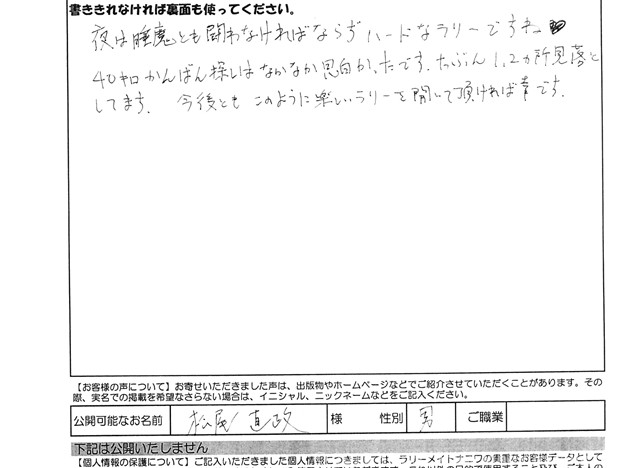 書ききれなければ裏面も使ってください。
夜は睡魔とも闘わなければならずハードなラリーですね
40キロかんばん探しはなかなか思白かったです。たぶん1,2ヵ所見落と
してます。今後とも このように楽しいラリーを開いて頂ければ幸です。
【お客様の声について】お寄せいただきました声は、出版物やホームページなどでご紹介させていただくことがあります。その
際、実名での掲載を希望なさらない場合は、イニシャル、ニックネームなどをご記入ください。
公開可能なお名前 松尾 直政 様 性別 男 ご職業
下記は公開いたしません
【個人情報の保護について】ご記入いただきました個人情報につきましては、ラリーメイトナニワの貴重なお客様データとして